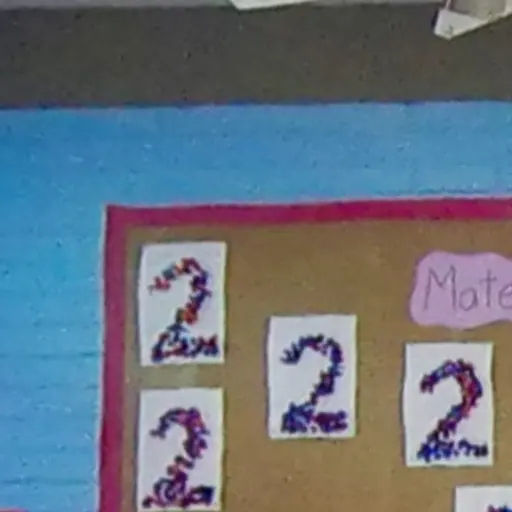 Mate
2
2
2
2